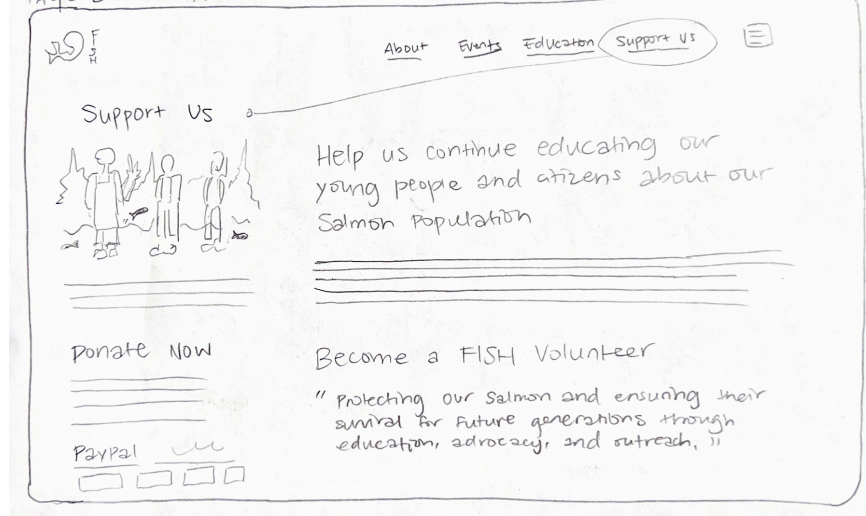 FISH
About Events Education Support Us
Support Us
Help us continue educating our
young people and citizens about our
Salmon Population
Donate Now
Become a FISH Volunteer
" Protecting our Salmon and ensuring their
survival for Future generations through
education, advocacy, and outreach. "
PayPal